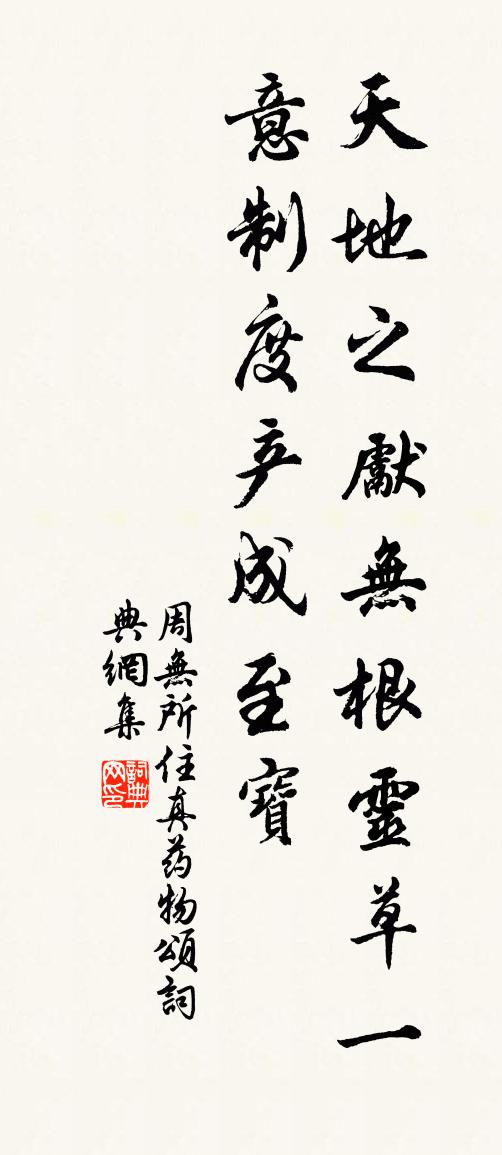 天地之獻無根靈草一
意制度产成至寶
周無所住真药物頌詞
典網集
詞典
网印